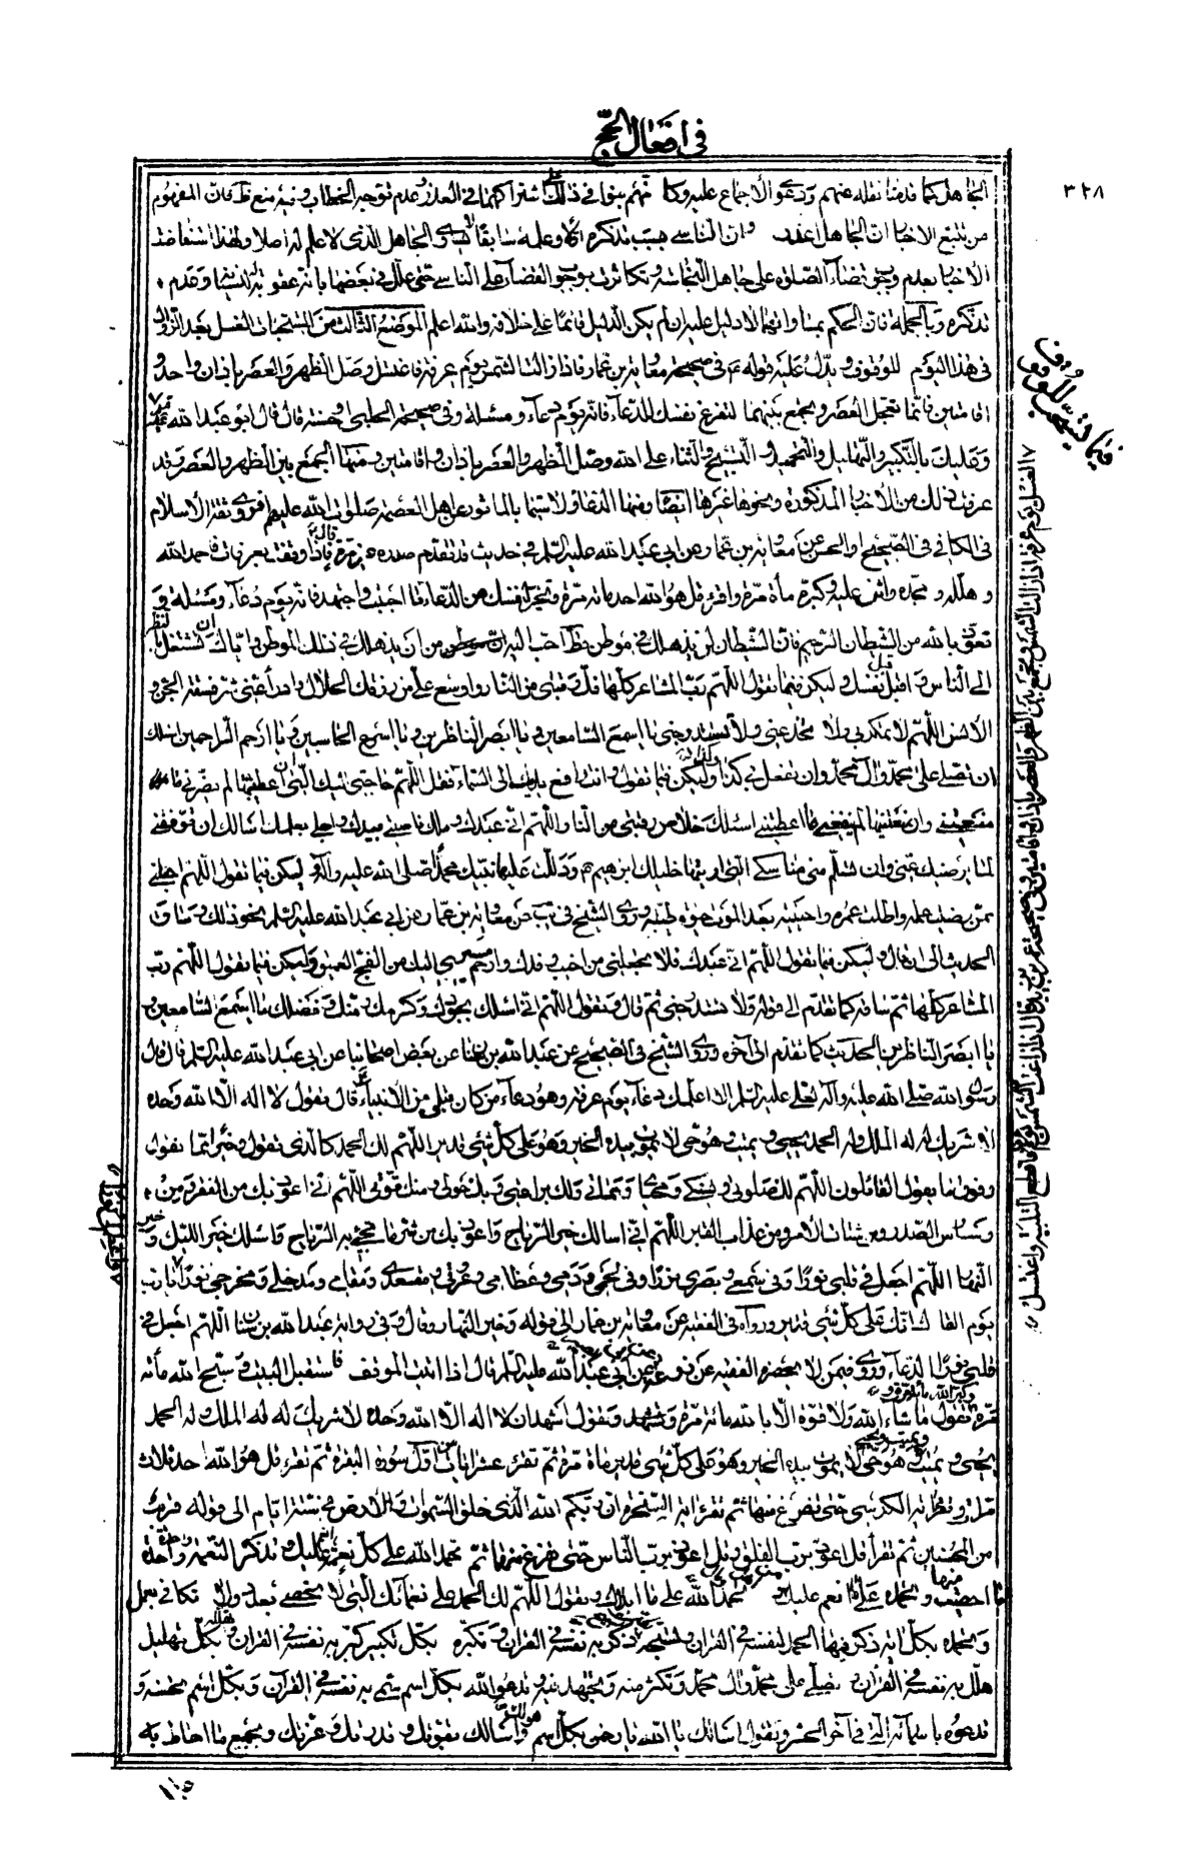 في افعال الحج
٣٢٨
الجاهل كما قدمنا نقله عنهم ودعوا الاجماع عليه وكانهم بنوا في ذلك على اشتراكهما في العذر وعدم توجه الخطاب وفيه منع ظ فان المفهوم
من تتبع الاخبار ان الجاهل اعذر وان الناسي بسبب تذكره اولا وعلمه سابقا ليس كالجاهل الذي لا علم له اصلا ولهذا استفاضت
الاخبار بعدم وجوب قضاء الصلوة على جاهل النجاسة وتكاثرت بوجوب القضاء على الناسي حتى علل في بعضها بانه عقوبة لنسيانه وعدم
تذكره وبالجملة فان الحكم بمساواتهما لا دليل عليه ان لم يكن الدليل قائما على خلافه والله اعلم الموضع الثالث من المستحبات الغسل بعد الزوال
في هذا اليوم للوقوف ويدل عليه قوله ع في صحيحة معاوية بن عمار فاذا زالت الشمس يوم عرفة فاغتسل وصل الظهر والعصر باذان واحد و
اقامتين فانما تعجل العصر وتجمع بينهما لتفرغ نفسك للدعاء فانه يوم دعاء ومسئلة وفي صحيحة الحلبي او حسنته قال قال ابو عبد الله
وعليك بالتكبير والتهليل والتحميد والتسبيح والثناء على الله وصل الظهر والعصر باذان واقامتين ومنها الجمع بين الظهر والعصر وقد
عرفت ذلك من الاخبار المذكورة ونحوها غيرها ايضا ومنها الدعاء ولا سيما بالماثور عن اهل العصمة صلوات الله عليهم فروى ثقة الاسلام
في الكافي في الصحيح او الحسن عن معاوية بن عمار عن ابي عبد الله عليه السلم في حديث قد تقدم صدره قال فاذا وقفت بعرفات فاحمد الله
وهلله ومجده واثن عليه وكبره مأة مرة واقرء قل هو الله احد مائة مرة وتخير لنفسك من الدعاء ما احببت واجتهد فانه يوم دعاء ومسئلة و
تعوذ بالله من الشيطان الرجيم فان الشيطان لن يذهلك في موطن قط احب اليه من ان يذهلك في ذلك الموطن واياك ان تشتغل بالنظر
الى الناس واقبل قبل نفسك وليكن فيما تقول اللهم رب المشاعر كلها فك رقبتي من النار واوسع علي من رزقك الحلال وادرأ عني شر فسقة الجن و
الانس اللهم لا تمكر بي ولا تخدعني ولا تستدرجني يا اسمع السامعين ويا ابصر الناظرين ويا اسرع الحاسبين ويا ارحم الراحمين اسئلك
ان تصلي على محمد وال محمد وان تفعل بي كذا وكذا وليكن فيما تقول وانت رافع يديك الى السماء تقول اللهم حاجتي اليك التي ان اعطيتها لم يضرني ما
منعتني وان منعتنيها لم ينفعني ما اعطيتني اسئلك خلاص رقبتي من النار اللهم اني عبدك وملك ناصيتي بيدك واجلي بعلمك اسالك ان توفقني
لما يرضيك عني وان تسلم مني مناسكي التي اريتها خليلك ابرهيم ع ودللت عليها نبيك محمدا صلى الله عليه وآله وليكن فيما تقول اللهم اجعلني
ممن رضيت عمله واطلت عمره واحييته بعد الموت حيوة طيبة وروى الشيخ في يب عن معاوية بن عمار عن ابي عبد الله عليه السلم نحو ذلك وساق
الحديث الى ان قال وليكن فيما تقول اللهم اني عبدك فلا تجعلني من اخيب وفدك وارحم مسيري اليك من الفج العميق وليكن فيما تقول اللهم رب
المشاعر كلها ثم ساقه كما تقدم الى قوله ولا تستدرجني ثم قال وتقول اللهم اني اسئلك بحولك وجودك وكرمك ومنك وفضلك يا اسمع السامعين و
يا ابصر الناظرين الحديث كما تقدم الى آخره وروى الشيخ في الصحيح عن عبد الله بن سنان عن بعض اصحابنا عن ابي عبد الله عليه السلم قال قال
رسول الله صلى الله عليه وآله لعلي عليه السلم الا اعلمك دعاء يوم عرفة وهو دعاء من كان قبلي من الانبياء قال تقول لا اله الا الله وحده
لا شريك له له الملك وله الحمد يحيي ويميت وهو حي لا يموت بيده الخير وهو على كل شئ قدير اللهم لك الحمد كالذي تقول وخيرا مما نقول
وفوق ما يقول القائلون اللهم لك صلوتي ونسكي ومحياي ومماتي ولك براءتي وبك حولي ومنك قوتي اللهم اني اعوذ بك من الفقر ومن
وسواس الصدر ومن شتات الامر ومن عذاب القبر اللهم اني اسالك خير الرياح واعوذ بك من شر ما تجئ به الرياح واسئلك خير الليل وخير
النهار اللهم اجعل في قلبي نورا وفي سمعي وبصري نورا وفي لحمي ودمي وعظامي وعروقي ومقعدي ومقامي ومدخلي ومخرجي نورا واعظم لي نورا يا رب
يوم القاك انك على كل شئ قدير ورواه في الفقيه عن معاوية بن عمار الى قوله وخير النهار وقال وفي رواية عبد الله بن سنان اللهم اجعل في
قلبي نورا الدعاء وروى فيمن لا يحضره الفقيه عن ابي عبد الله عليه السلم قال اذا اتيت الموقف فاستقبل البيت وسبح الله مأة
مرة وكبر الله مائة مرة وتقول ما شاء الله ولا قوة الا بالله مائة مرة وتقول اشهد ان لا اله الا الله وحده لا شريك له له الملك وله الحمد
يحيي ويميت ويميت ويحيي وهو حي لا يموت بيده الخير وهو على كل شئ قدير مأة مرة ثم تقرء عشر ايات من اول سورة البقرة ثم تقرء قل هو الله احد ثلاث
مرات وتقرأ اية الكرسي حتى تفرغ منها ثم تقرء اية السخرة ان ربكم الله الذي خلق السموات والارض في ستة ايام الى قوله قريب
من المحسنين ثم تقرأ قل اعوذ برب الفلق وقل اعوذ برب الناس حتى تفرغ منهما ثم تحمد الله على كل نعمة انعم عليك وتذكر النعمة واحدة واحدة
ما احصيت منها وتحمده على ما انعم عليك وتحمد الله على ما ابلاك وتقول اللهم لك الحمد على نعمائك التي لا تحصى بعدد ولا تكافى بعمل
وتحمده بكل اية ذكر فيها الحمد لنفسه في القران وتسبحه بكل تسبيح ذكر به نفسه في القران وتكبره بكل تكبير كبر به نفسه في القران وتهلله بكل تهليل
هلل به نفسه في القران وتصلي على محمد وال محمد وتكثر منه وتجتهد فيه وتدعو الله بكل اسم سمى به نفسه في القرآن وبكل اسم تحسنه و
تدعوه باسمائه التي في آخر الحشر وتقول اسالك يا الله يا رحمن بكل اسم هو لك واسالك بقوتك وقدرتك وعزتك وبجميع ما احاط به
فيما يستحب للوقوف
الغسل يوم عرفة اذا زالت الشمس وتجمع بين الظهر والعصر باذان واقامتين وفي صحيحة عمر بن يزيد قال اذا زاغت الشمس يوم عرفة فاقطع التلبية واغتسل